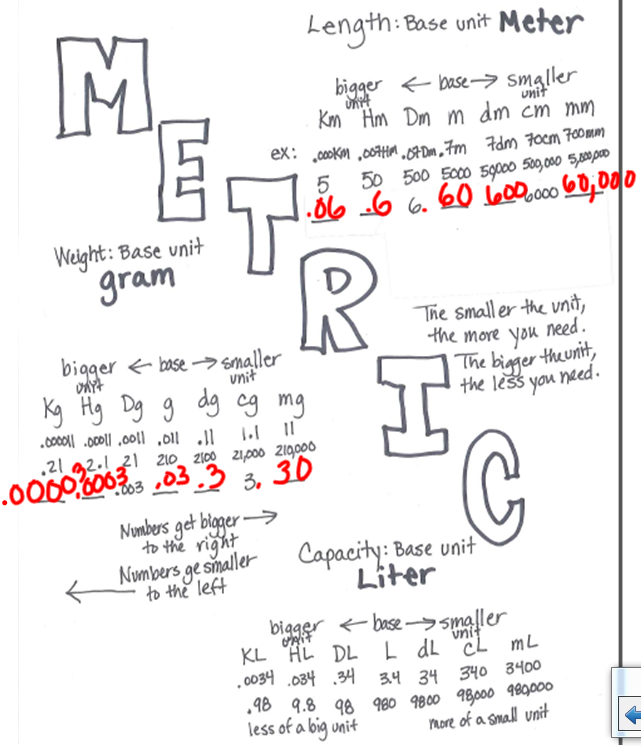 Length: Base unit Meter
METRIC
bigger ← base → smaller
unit unit
Km Hm Dm m dm cm mm
ex: .000Km .007Hm .07Dm .7m 7dm 70cm 700mm
5 50 500 5000 50,000 500,000 5,000,000
.06 .6 6. 60 600 6000 60,000
Weight: Base unit
gram
The smaller the unit,
the more you need.
The bigger the unit,
the less you need.
bigger ← base → smaller
unit unit
Kg Hg Dg g dg cg mg
.00011 .0011 .011 .11 1.1 11
.21 2.1 21 210 2100 21,000 210,000
.003 .03 .3 3. 30
Numbers get bigger →
to the right
Numbers ge smaller
← to the left
Capacity: Base unit
Liter
bigger ← base → smaller
unit unit
KL HL DL L dL cL mL
.0034 .034 .34 3.4 34 340 3400
.98 9.8 98 980 9800 98,000 980,000
less of a big unit more of a small unit